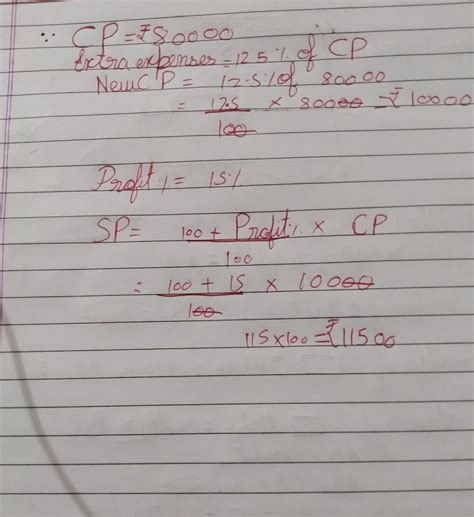 ∵ CP = ₹80000
Extra expenses = 12.5% of CP
New CP = 12.5% of 80000
= 12.5/100 × 80000 = ₹10000
Profit % = 15%
SP = 100 + Profit% / 100 × CP
= 100 + 15 / 100 × 10000
115×100 = ₹11500